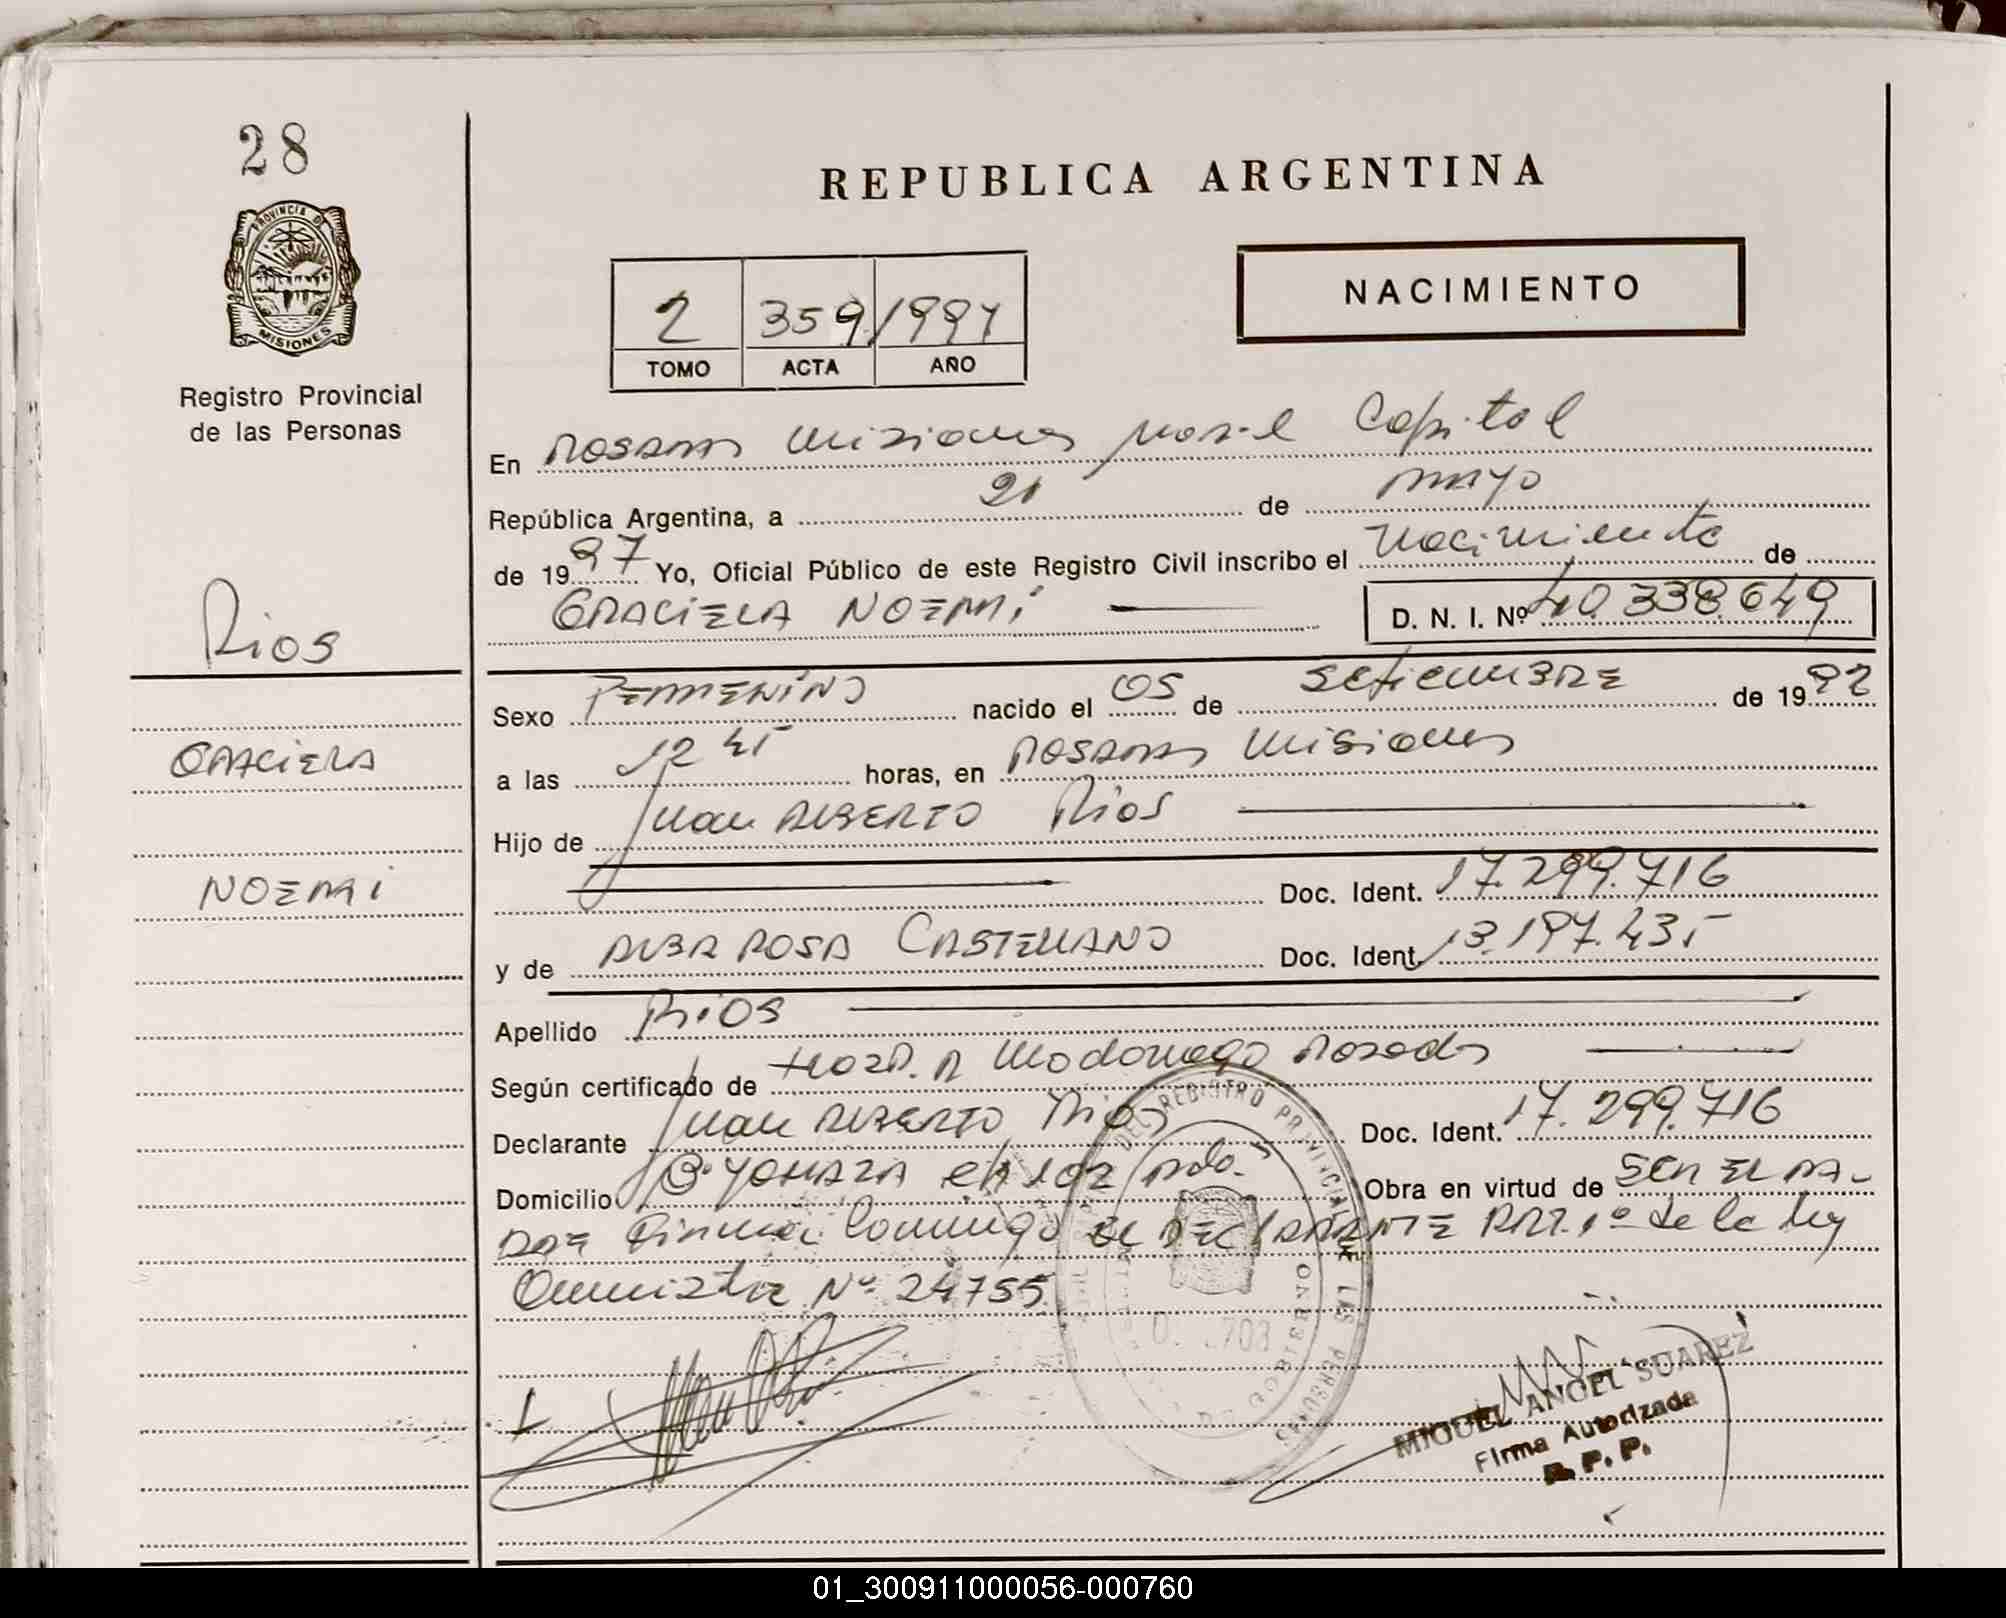 28
PROVINCIA DE
MISIONES
Registro Provincial
de las Personas
Rios
GRACIELA
NOEMI
REPUBLICA ARGENTINA
2 359 1997
TOMO ACTA AÑO
NACIMIENTO
En Posadas Misiones Capital
República Argentina, a 21 de mayo
de 1997 Yo, Oficial Público de este Registro Civil inscribo el Nacimiento de
GRACIELA NOEMI
D. N. I. Nº 40.338.649
Sexo FEMMENINO nacido el 05 de SEtiEMBRE de 1992
a las 12 45 horas, en POSADAS Misiones
Hijo de Juan ALBERTO Rios
Doc. Ident. 17.299.716
y de ALBA ROSA CASTELLANO Doc. Ident. 13.197.435
Apellido RiOS
Según certificado de Hosp. R Madariaga Posadas
Declarante Juan ALBERTO Rios Doc. Ident. 17.299.716
Domicilio Bº YOHAZA 102 Obra en virtud de SER EL PA-
DRE Firma Conmigo EL DECLARANTE ART. 1º de la ley
Nº 24755
DEL REGISTRO PROVINCIAL DE LAS PERSONAS
GOBIERNO
MIGUEL ANGEL SUAREZ
Firma Autorizada
R. P. P.
01_300911000056-000760